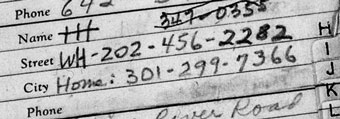 Phone 642
347-0355
Name HH
Street WH-202-456-2282
City Home: 301-299-7366
Phone
River Road
H
I
J
K
L